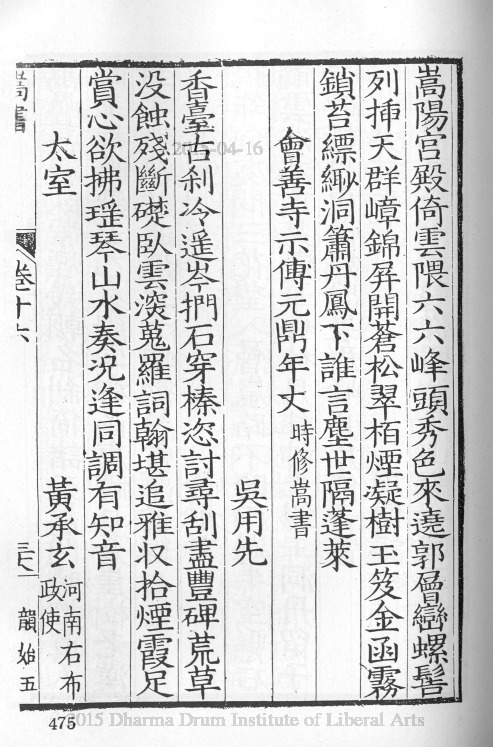 嵩陽宮殿倚雲隈六六峰頭秀色來遶郭層巒螺髻
列揷天群嶂錦屛開蒼松翠栢煙凝樹玉笈金函霧
鎖苔縹緲洞簫丹鳳下誰言塵世隔蓬萊
會善寺示傅元鼎年丈時修嵩書
吳用先
香臺古刹冷遙岑捫石穿榛恣討尋刮盡豐碑荒草
没蝕殘斷礎臥雲深蒐羅詞翰堪追雅収拾煙霞足
賞心欲拂瑶琴山水奏况逢同調有知音
太室
黃承玄河南右布政使
嵩書
卷十六
韻始五
475
2015-04-16
2015 Dharma Drum Institute of Liberal Arts